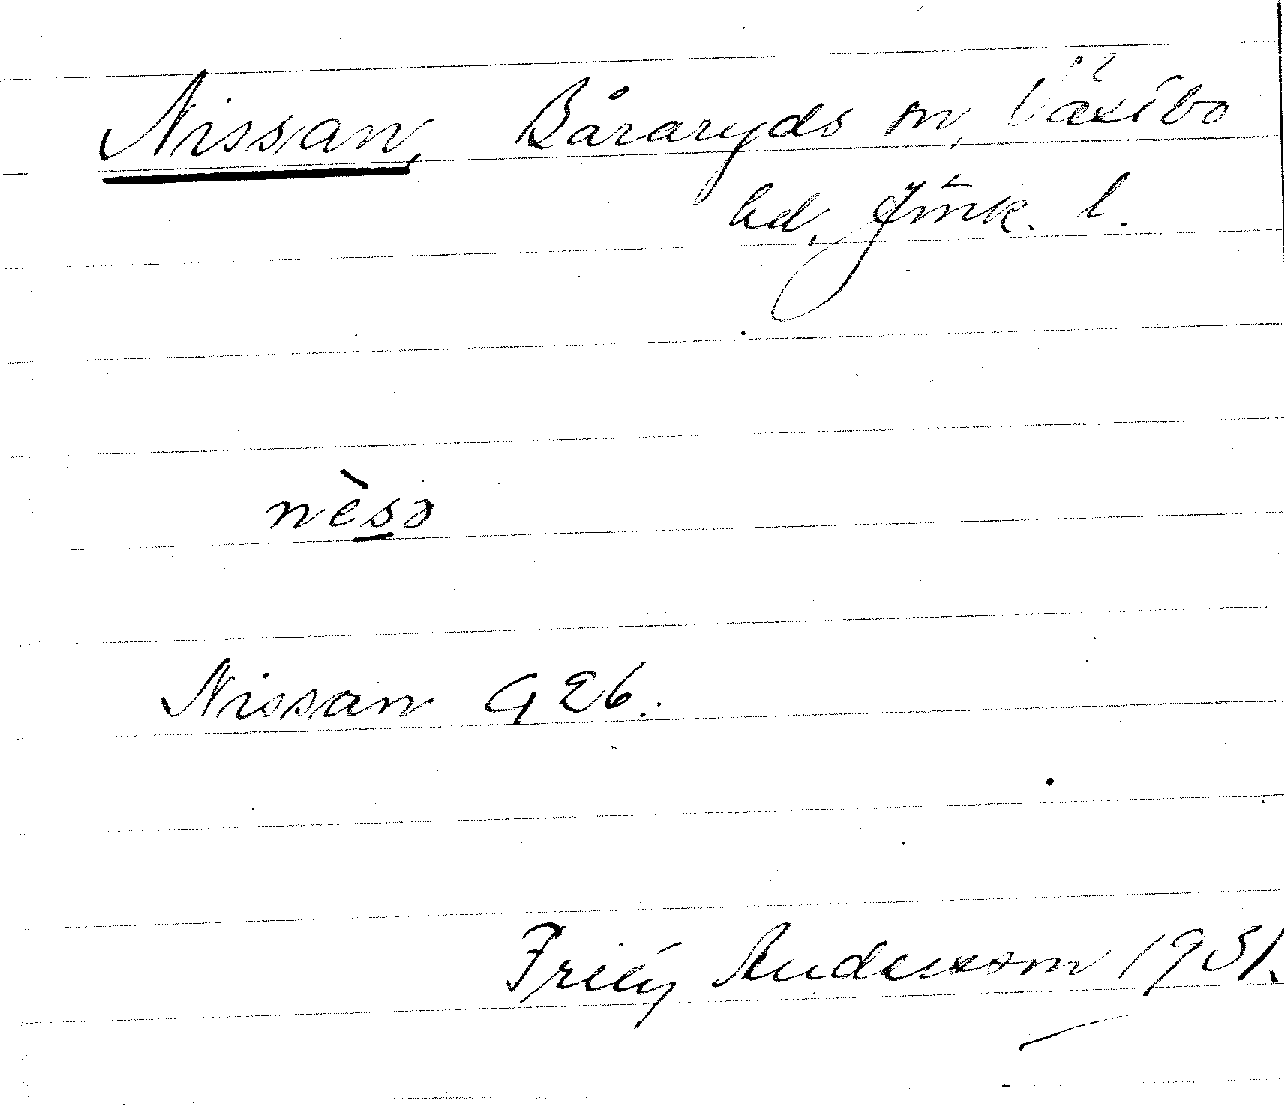 Nissan, Båraryds sn, Västbo
hd, Jönk. l.
nèsɔ
Nissan G 26.
Andersson 1931.